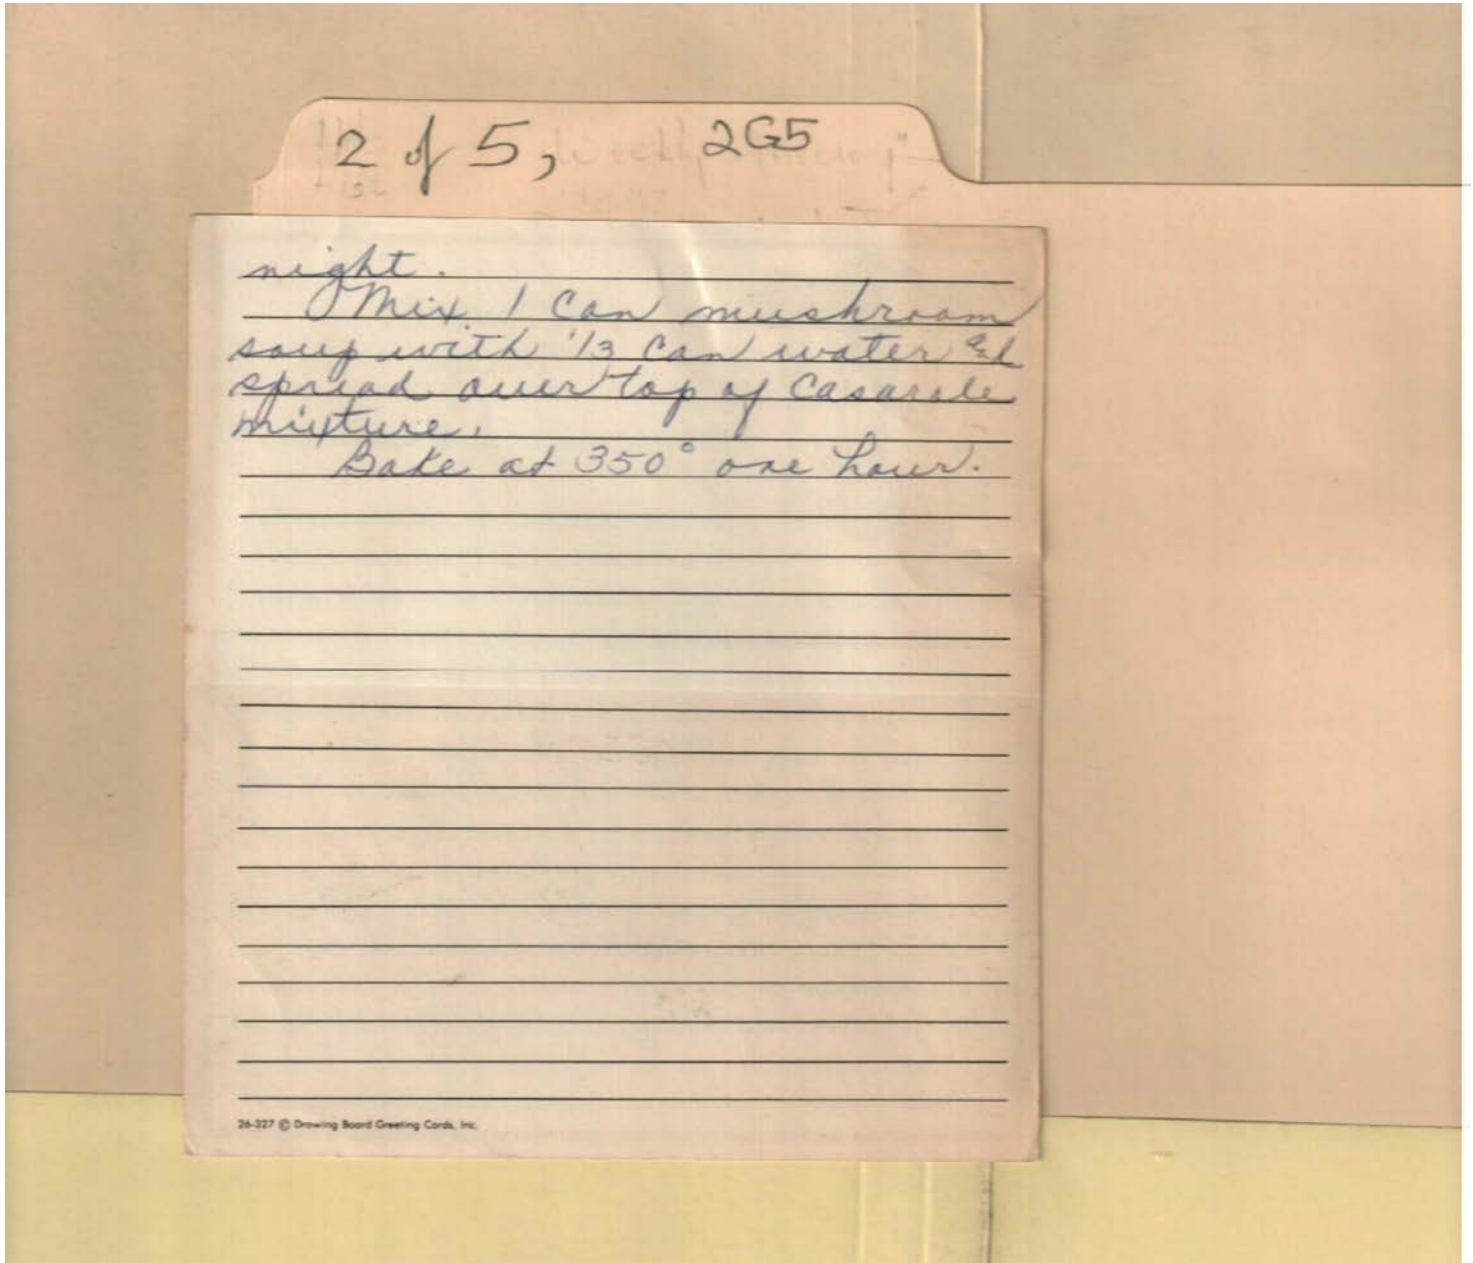 2 of 5, 2G5
night.
Mix 1 Can mushroom
soup with 1/3 Can water and
spread over top of Casarole
mixture.
Bake at 350° one hour.
26-327 © Drawing Board Greeting Cards, Inc.